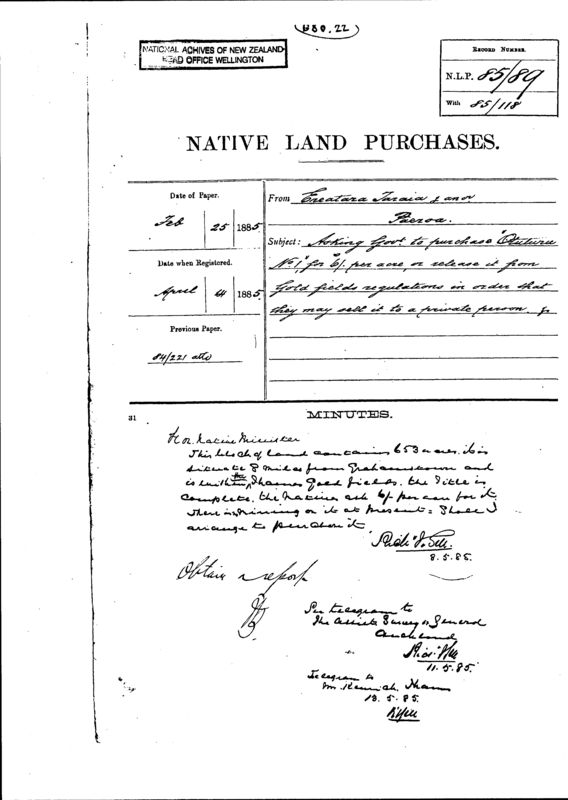 NATIONAL ACHIVES OF NEW ZEALAND
HEAD OFFICE WELLINGTON
RECORD NUMBER.
N.L.P. 85/89
With 85/118
NATIVE LAND PURCHASES.
Date of Paper.
Feb 25 1885
Date when Registered.
April 14 1885
Previous Paper.
84/221 atto
From Ereatara Taraia & anor
Paeroa.
Subject: Asking Govt to purchase "
No 1" for 6/. per acre, or release it from
Gold fields regulations in order that
they may sell it to a private person.
31
MINUTES.
Hon. Native Minister
This block of land contains 653 acres. it is
situate 8 miles from Grahamstown and
is within the Thames Gold fields. the Title is
complete. the Natives ask 6/ per acre for it
there is mining on it at present. Shall I
arrange to purchase it
8.5.85.
Obtain report
Per telegram to
The Assist Survey General
Auckland
11.5.85.
Telegram to
Mr Kenrick, Thames
13.5.85.